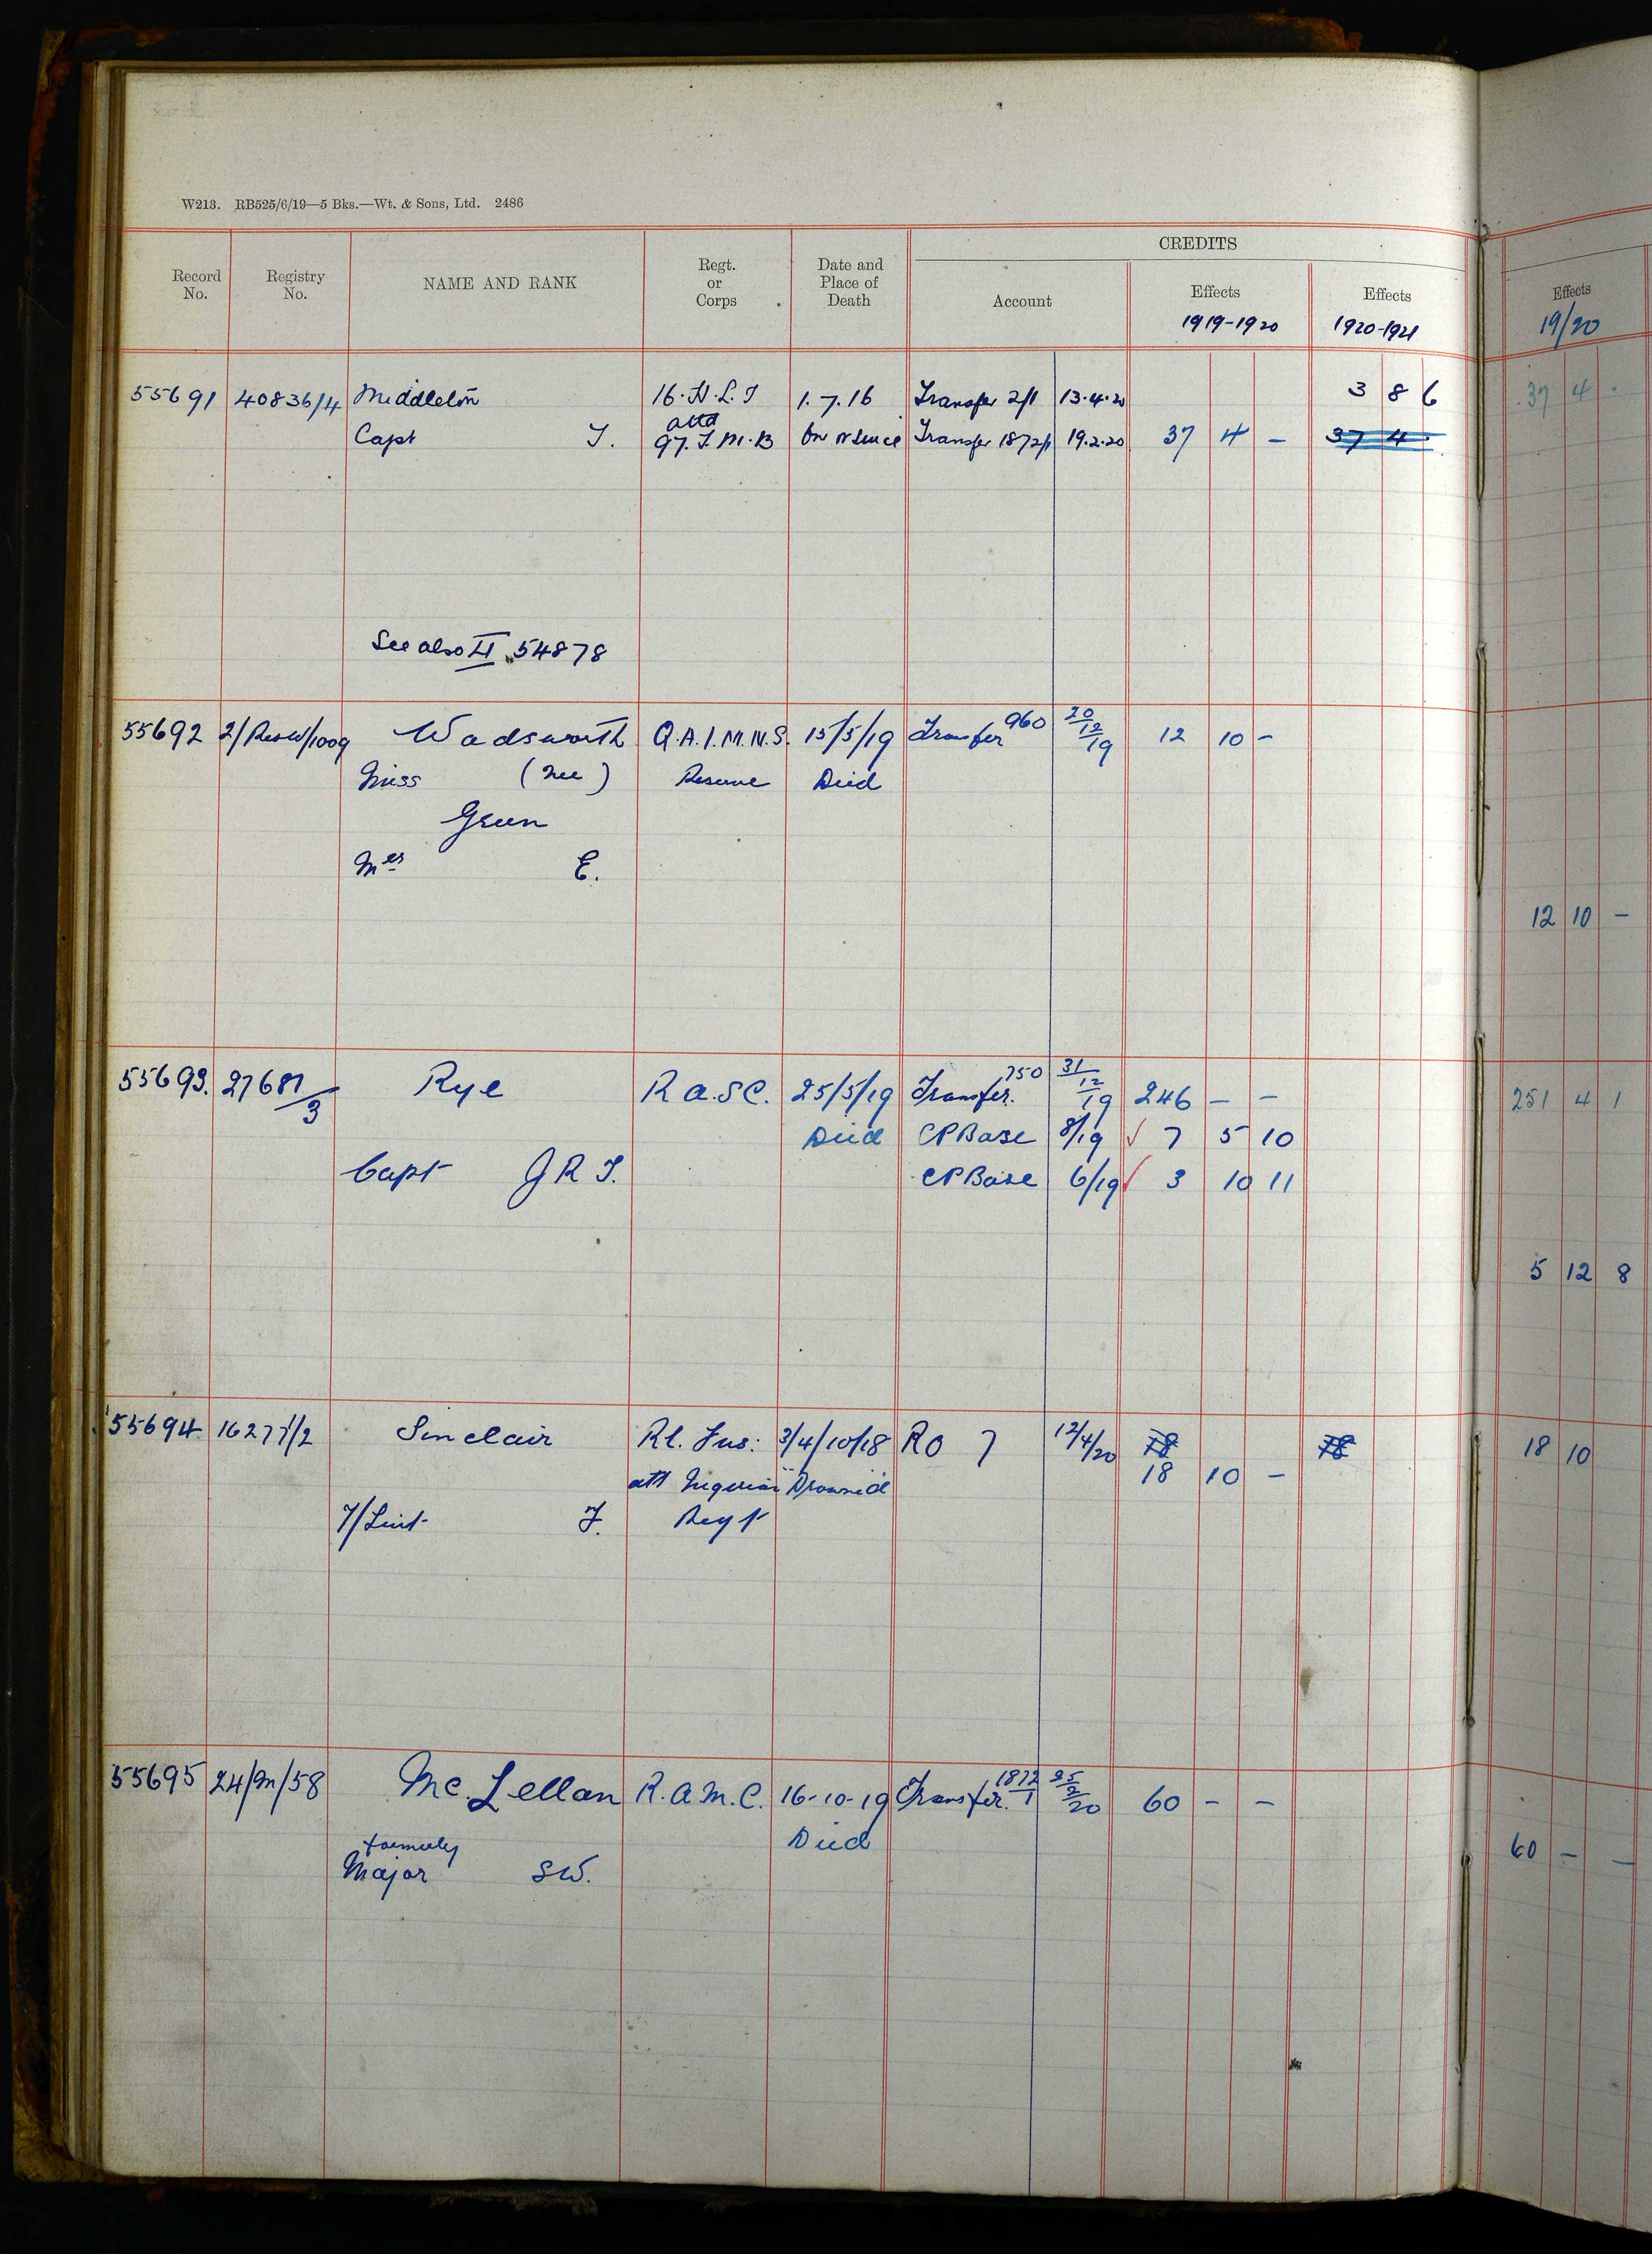 W213. RB525/6/19—5 Bks.—Wt. & Sons, Ltd. 2486
CREDITS
Record No. Registry No. NAME AND RANK Regt. or Corps Date and Place of Death Account Effects Effects Effects
1919-1920 1920-1921 19/20
55691 40836/4 Middleton 16.H.L.I 1.7.16 Transfer 2/1 13.4.20 3 8 6 37 4 .
Capt T. attd 97.T.M.B On or Since Transfer 1872/1 19.2.20 37 4 - 37 4 .
See also II 54878
55692 2/Res W/1009 Wadsworth Q.A.I.M.N.S. 15/5/19 Transfer 960 20/12/19 12 10 -
Miss (nee) Reserve Died
Green
Mrs E.
12 10 -
55693. 27681/3 Rye R A.S.C. 25/5/19 Transfer. 750 31/12/19 246 - - 251 4 1
Died CP Base 8/19 ✓ 7 5 10
Capt J R T. CP Base 6/19 ✓ 3 10 11
5 12 8
55694 16277/2 Sinclair Rl. Fus: 3/4/10/18 RO 7 12/4/20 78 78 18 10
att Nigerian Drowned 18 10 -
T/Lieut F. Regt
55695 24/M/58 Mc. Lellan R.A.M.C. 16-10-19 Transfer. 1872/1 25/2/20 60 - -
Died
formerly
Major S W. 60 - -